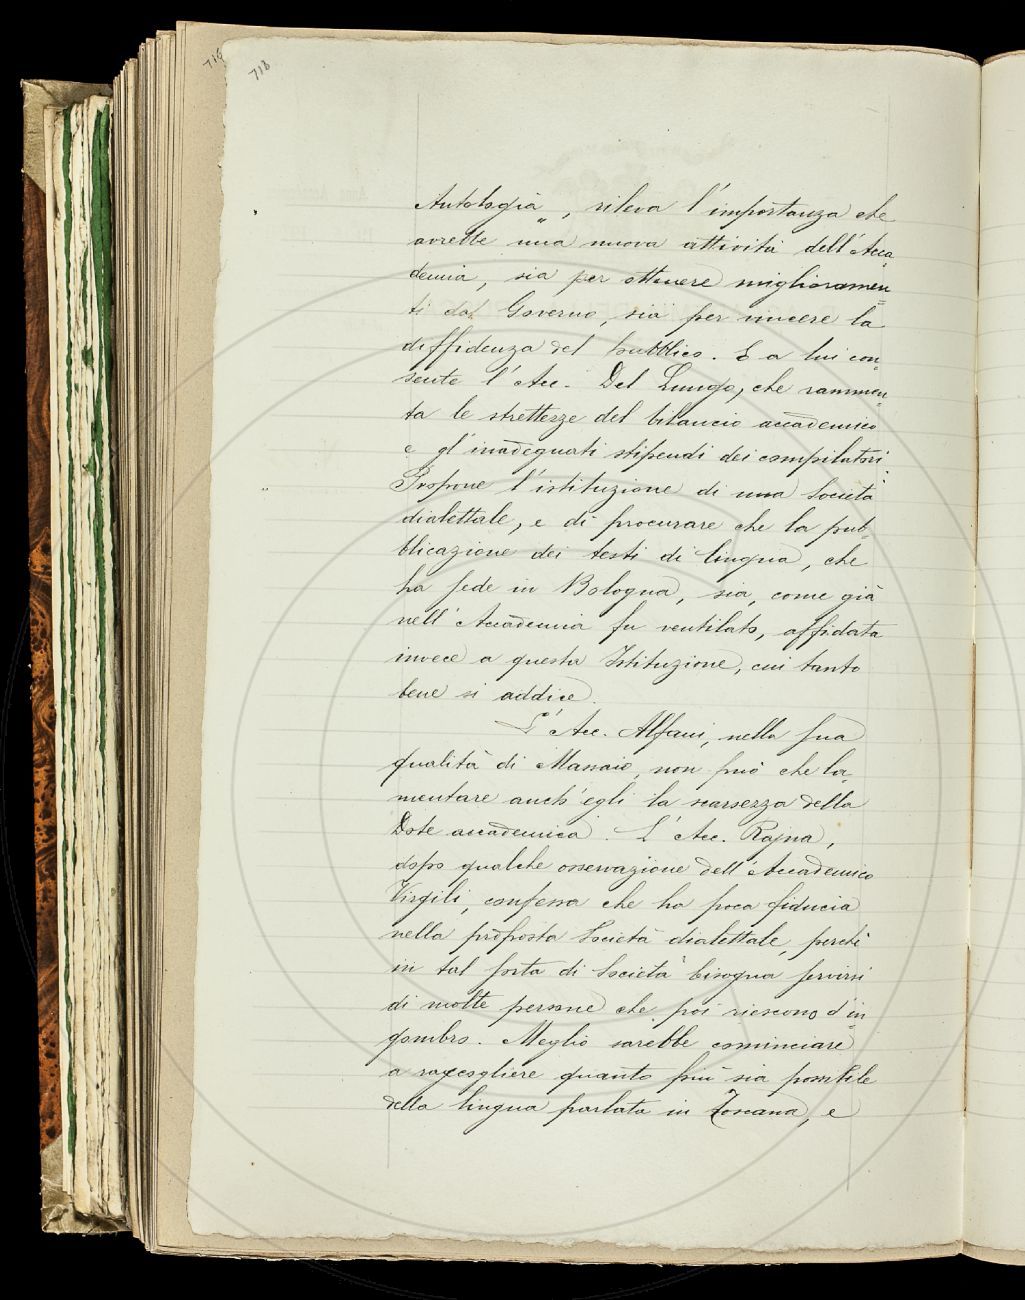 716
718
Antologia", rileva l'importanza che
avrebbe una nuova attività dell'Acca=
demia, sia per ottenere miglioramen=
ti dal Governo, sia per vincere la
diffidenza del pubblico. E a lui con=
sente l'Acc. Del Lungo, che rammen=
ta le strettezze del bilancio accademico
e gl'inadeguati stipendi dei compilatori.
Propone l'istituzione di una Società
dialettale, e di procurare che la pub=
blicazione dei testi di lingua, che
ha sede in Bologna, sia, come già
nell'Accademia fu ventilato, affidata
invece a questa Istituzione, cui tanto
bene si addice.
L'Acc. Alfani, nella sua
qualità di Massaio, non può che la=
mentare anch'egli la scarsezza della
Dote accademica. L'Acc. Rajna,
dopo qualche osservazione dell'Accademico
Virgili, confessa che ha poca fiducia
nella proposta Società dialettale, perchè
in tal sorta di Società bisogna servirsi
di molte persone che poi riescono d'in=
gombro. Meglio sarebbe cominciare
a raccogliere quanto più sia possibile
della lingua parlata in Toscana, e